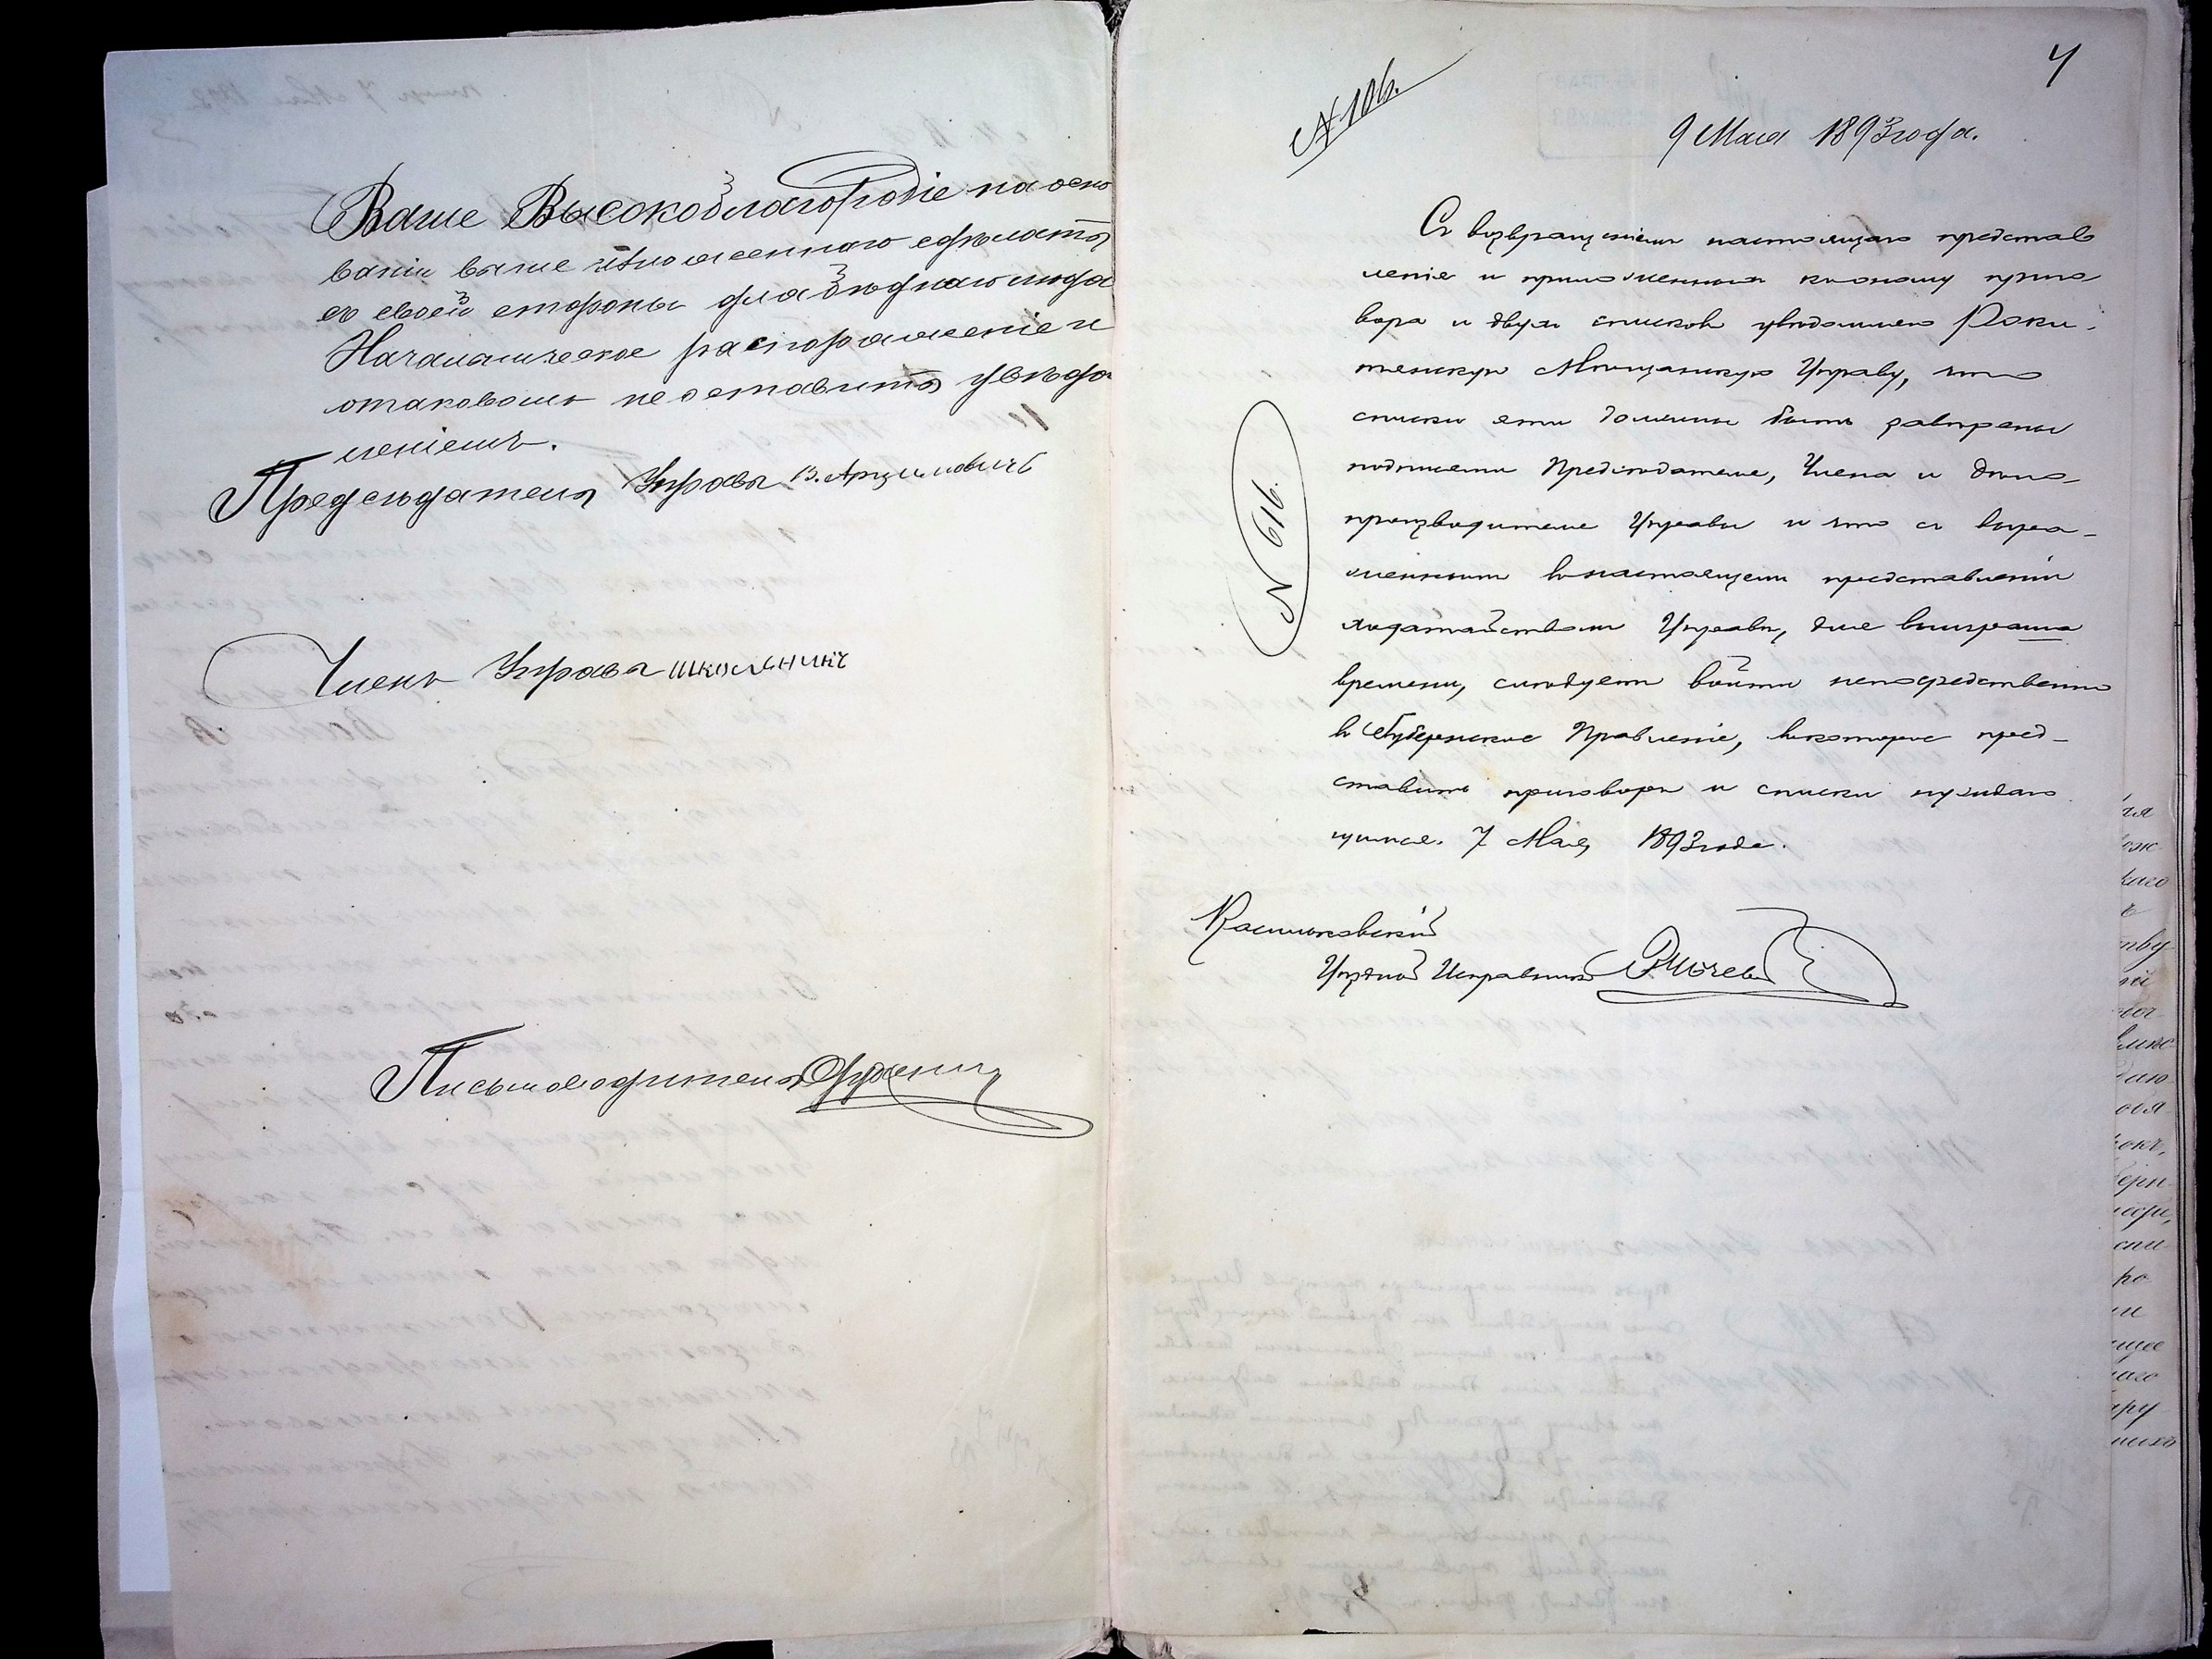 Ваше Высокоблагородіе на осно
ваніи выше изложеннаго сдѣлать
съ своей стороны для бѣднаго люда
Начальническое распоряженіе и
отаковомъ не оставить увѣдом
леніемъ.
Предсѣдатель Управы В. Арцимовичъ
Членъ Управы Школьникъ
Письмоводитель
4
№ 106.
9 Мая 1893 года.
№ 616.
Съ возвращеніемъ настоящаго представ
ленія и приложенныхъ къ оному приго
вора и двухъ списковъ увѣдомляю Роки-
тянскую Мѣщанскую Управу, что
списки эти должны быть завѣрены
подписями Предсѣдателя, Члена и дѣло-
производителя Управы и что съ выра-
женнымъ въ настоящемъ представленіи
ходатайствомъ Управы, для выиграша
времени, слѣдуетъ войти непосредственно
въ Губернское Правленіе, въ которое пред-
ставить приговоръ и списки нуждаю
щихся. 7 Мая 1893 года.
Васильковскій
Уѣздный Исправникъ